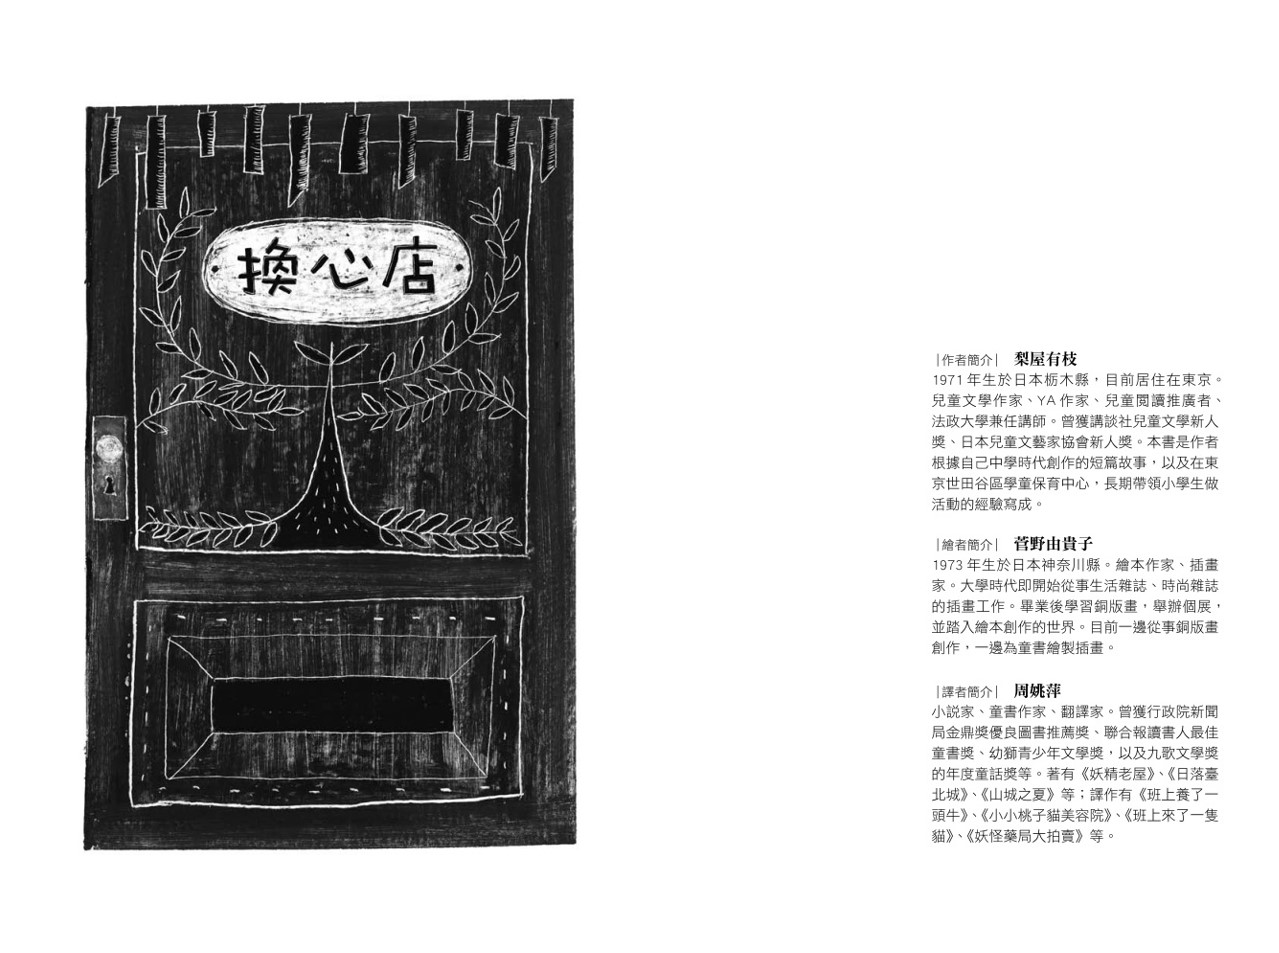 換心店
|作者簡介| 梨屋有枝
1971 年生於日本栃木縣，目前居住在東京。
兒童文學作家、YA 作家、兒童閱讀推廣者、
法政大學兼任講師。曾獲講談社兒童文學新人
獎、日本兒童文藝家協會新人獎。本書是作者
根據自己中學時代創作的短篇故事，以及在東
京世田谷區學童保育中心，長期帶領小學生做
活動的經驗寫成。
|繪者簡介| 菅野由貴子
1973 年生於日本神奈川縣。繪本作家、插畫
家。大學時代即開始從事生活雜誌、時尚雜誌
的插畫工作。畢業後學習銅版畫，舉辦個展，
並踏入繪本創作的世界。目前一邊從事銅版畫
創作，一邊為童書繪製插畫。
|譯者簡介| 周姚萍
小說家、童書作家、翻譯家。曾獲行政院新聞
局金鼎獎優良圖書推薦獎、聯合報讀書人最佳
童書獎、幼獅青少年文學獎，以及九歌文學獎
的年度童話獎等。著有《妖精老屋》、《日落臺
北城》、《山城之夏》等；譯作有《班上養了一
頭牛》、《小小桃子貓美容院》、《班上來了一隻
貓》、《妖怪藥局大拍賣》等。